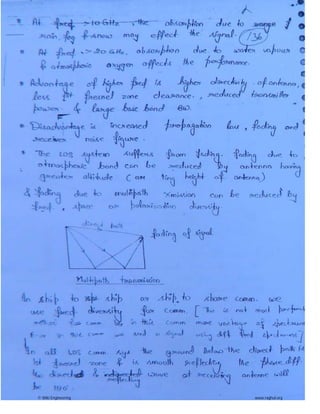 * At freq > 10 GHz, the absorption due to oxygen,
rain, fog & snow may affect the signal. 136
* At freq > 20 GHz, absorption due to water vapour
& atmospheric oxygen affects the performance.
* Advantage of higher freq is higher directivity of antenna,
less fresnel zone clearance, reduced transmitter
power & large base band BW.
* Disadvantage is increased propagation loss, fading and
receiver noise figure.
* The LOS system suffers from fading. fading due to
atmospheric bend can be reduced by antenna having
greater altitude ( height of antenna)
& fading due to multipath Xmission can be reduced by
freq, space or polarization diversity
direct path
fading of signal
Multipath transmission
In ship to ship or ship to shore comm. we
use freq diversity for comm [ This is not most
method for comm in this comm more of spectrum
we send a signal using diff freq spectrums]
In all LOS comm sys the ground below the direct path
1st fresnel zone is smooth reflecting the phase diff.
the directed & reflecting wave at receiving antenna will
be 180°.
© Wiki Engineering
www.raghul.org